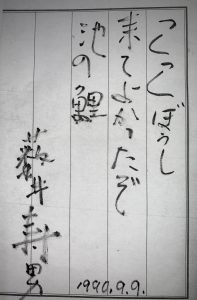 つくつくぼうし
来てよかったぞ
池の鯉
藤井寿男
1990.9.9.